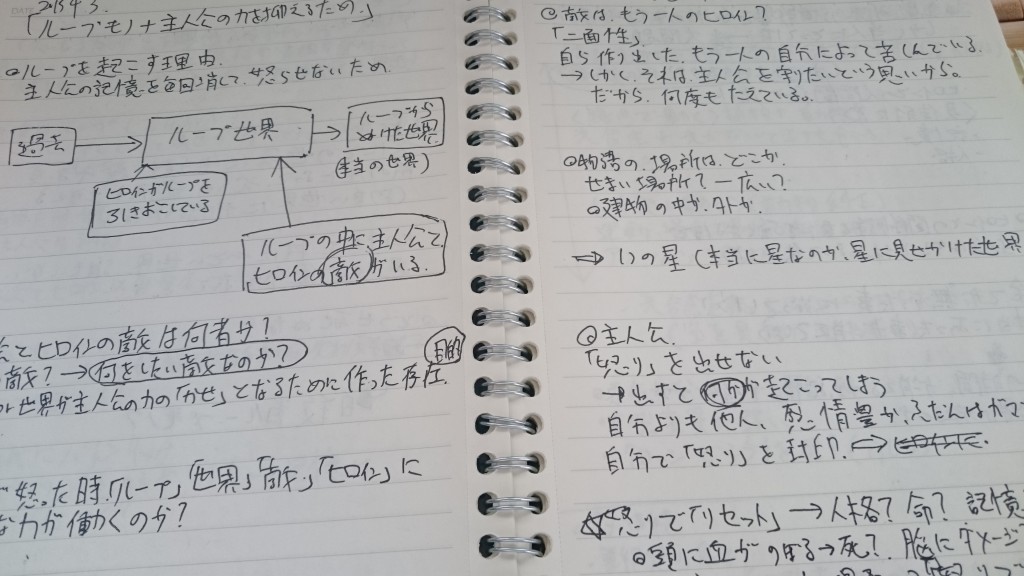 「ループモノ+主人公の力を抑えるため」
ループを起こす理由
主人公の記憶を毎回消して、怒らせないため
過去
ループ世界
ループから
ぬけた世界
(本当の世界)
ヒロインがループを
引きおこしている
ループの中に主人公と
ヒロインの敵がいる。
とヒロインの敵は何者か?
敵?→何をしたい敵なのか?
目的
世界が主人公の力の「かせ」となるために作った存在
怒った時、「ループ」「世界」「敵」「ヒロイン」に
力が働くのか?
◎敵は、もう一人のヒロイン?
「二面性」
自ら作り出した、もう一人の自分によって苦しんでいる。
→しかし、それは、主人公を守りたいという思いから。
だから、何度もたえている。
物語の場所は、どこか
せまい場所?ー広い?
建物の中か、外か
⇒1つの星(本当に星なのか、星に見せかけた世界
◎主人公
「怒り」を出せない
→出すと何かが起こってしまう
自分よりも他人、感情豊か、ふだんは
自分で「怒り」を封印
☆怒りで「リセット」→人格?命?記憶
頭に血がのぼる→死?脳にダメージ